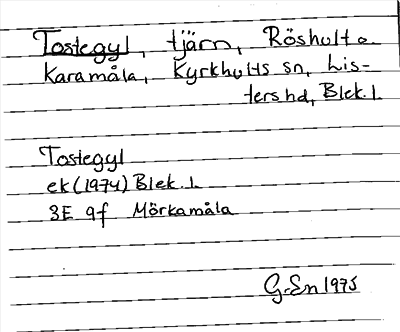 Tostegyl, tjärn, Röshult o.
Karamåla, Kyrkhults sn, Lis-
ters hd, Blek. l.
Tostegyl
ek (1974) Blek. l.
3E 9f Mörkamåla
G. En 1975